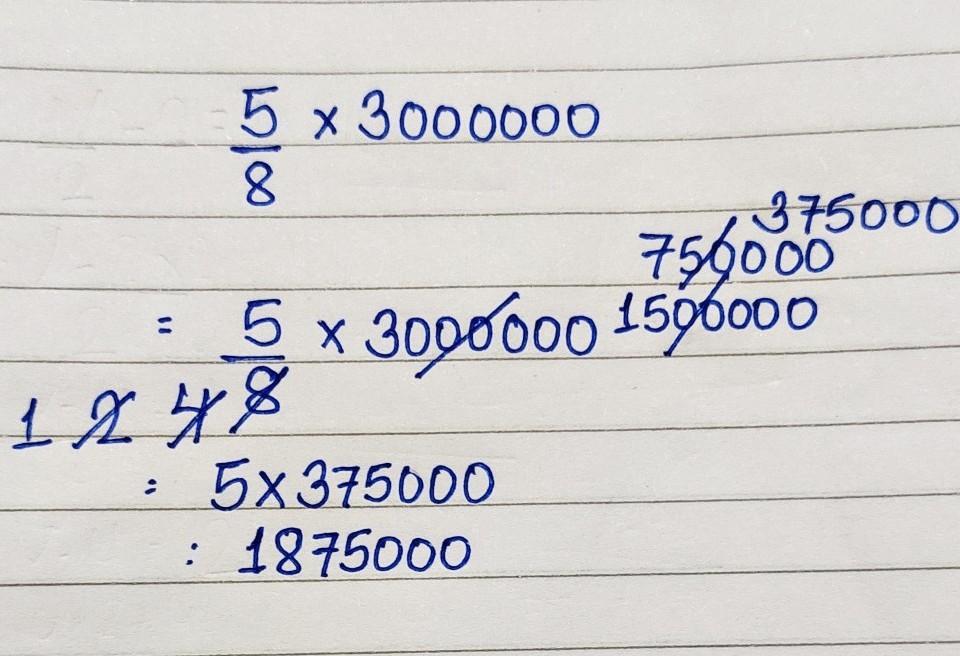 5/8 × 3000000
375000
750000
= 5/8 × 3000000 1500000
1 2 4
= 5×375000
: 1875000